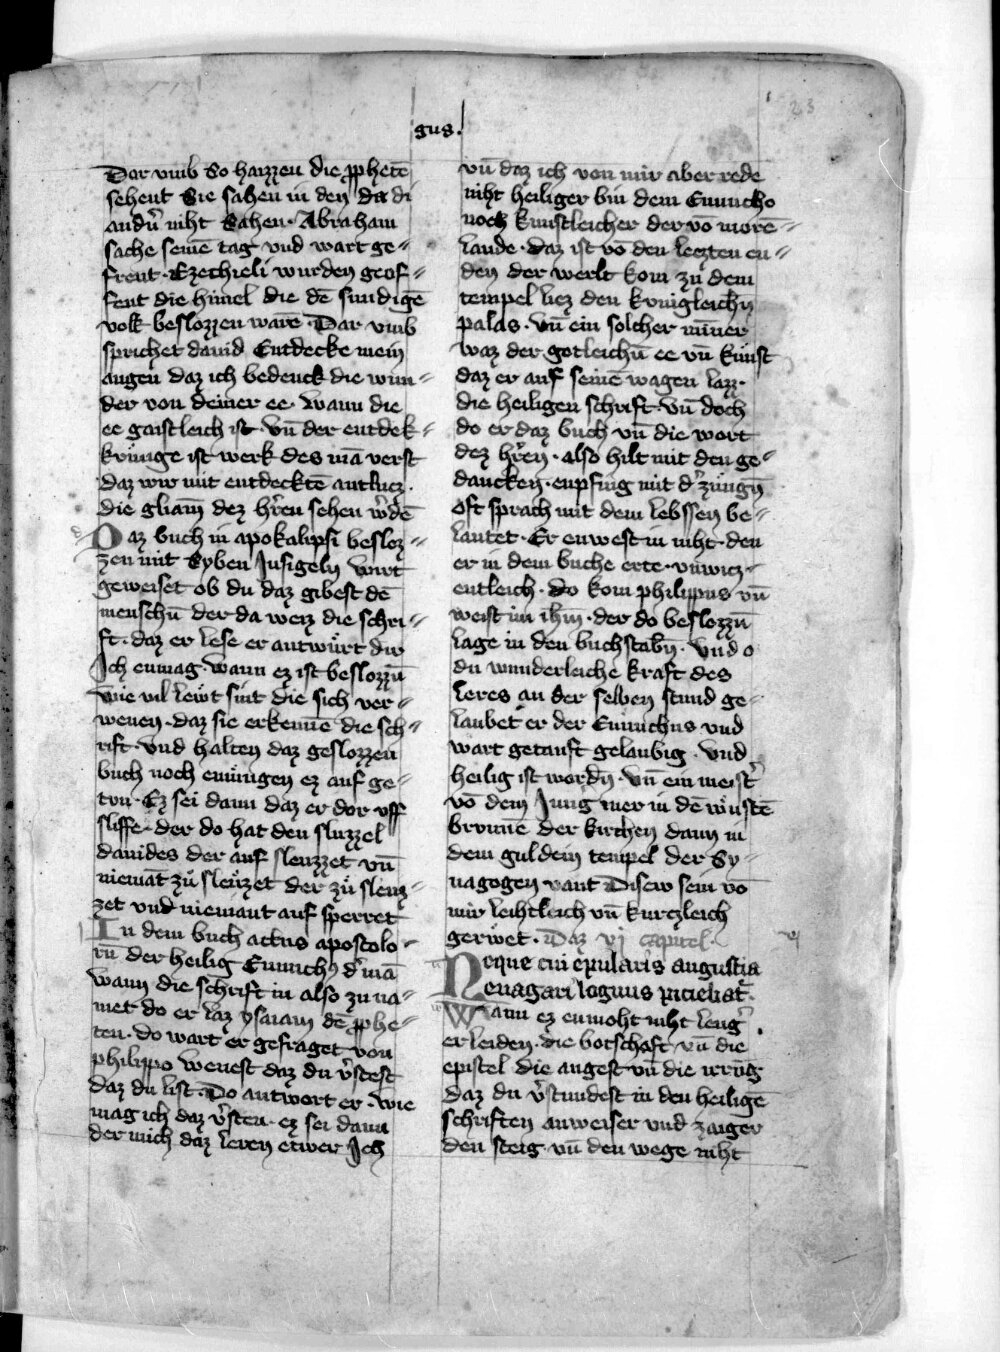 23
gus.
Dar vmb So haizzen die ꝓphetē
sehent Sie sahen in den da di
andn̄ niht Sahen · Abraham
sache seinē tag vnd wart ge-
freut · Ezechieli wurden geof-
fent die himel die dē sundigē
volk beslozzen warē · Dar vmb
sprichet dauid Entdecke mein
augen daz ich bedenck die wun-
der von deiner ee · wann die
ee gaistleich ist · vn̄ der entdek-
krunge ist werk des mā verst
daz wir mit entdecktē antlucz ·
die gliam̄ dez hr̄en sehen w̄dē
Daz buch in apokalipsi besloz-
zen mit Syben Jnsigeln wirt
geweiset ob du daz gibest dē
menschn̄ der da weiz die schri-
ft · daz er lese er antwürt dir
Jch enmag · wann ez ist beslozzn̄
wie vil lewt sint die sich ver-
wenen · daz sie erkennē die sch-
rift · vnd halten daz geslozzen
buch noch enmügen ez auf ge-
tvn · Ez sei dann daz er dor vff
sliffe · der do hat den sluzzel
dauides der auf sleuzzet vn̄
niemāt zů sleüzet der zů sleuz-
zet vnd niemant auf sperret
In dem buch actus apostolo-
rū der heilig Eunuchꝰ d' mā
wann die schrift in also zu na-
met do er laz ysaiam dē ꝓphe-
ten · do wart er gefraget von
philippo wenest daz du v̄stest
daz du list · Do antwort er · wie
mag ich daz v̄sten · ez sei dann
der mich daz leren etwer Jch
vn̄ daz ich von mir aber rede
niht heiliger bin dem Eunucho
noch kunstleicher der vō morē-
lande · daz ist vō den leczten en-
den der werlt kom zu dem
tempel liez den kvnigleichn̄
palas · vn̄ ein solcher minner
waz der gotleichn̄ ee vn̄ kunst
daz er auf seinē wagen lazz ·
die heiligen schrift · vn̄ doch
do er daz buch vn̄ die wort
dez hr̄en · also hilt mit den ge-
dancken · enpfing mit d' zungn̄
oft sprach mit dem lebssen be-
lautet · Er enwest in niht · den
er in dem buche erte · vnwicz-
entleich · do kom philippus vn̄
weist im ihm̄ · der do beslozzn̄
lage in den buchstabn̄ · vnd o
du wunderleiche kraft des
leres an der selben stund ge-
laubet er der Eunuchus vnd
wart getauft gelaubig · vnd
heilig ist wordn̄ · vn̄ ein meist'
vō dem Jung mer in dē wüstē
brvnnē der kirchen dann in
dem guldein tempel der Sy-
nagogen vant Disew sein vō
mir leihtleich vn̄ kurczleich
gerwet · Daz vj capitel ·
Neque cui epularis angustia
euagari logius
Wann ez enmoht niht leng'
er leiden · die botschaft vn̄ die
epistel die angest vn̄ die irrūg
daz du v̄stundest in den heiligē
schriften anweiser vnd zaiger
den steig vn̄ den wege niht